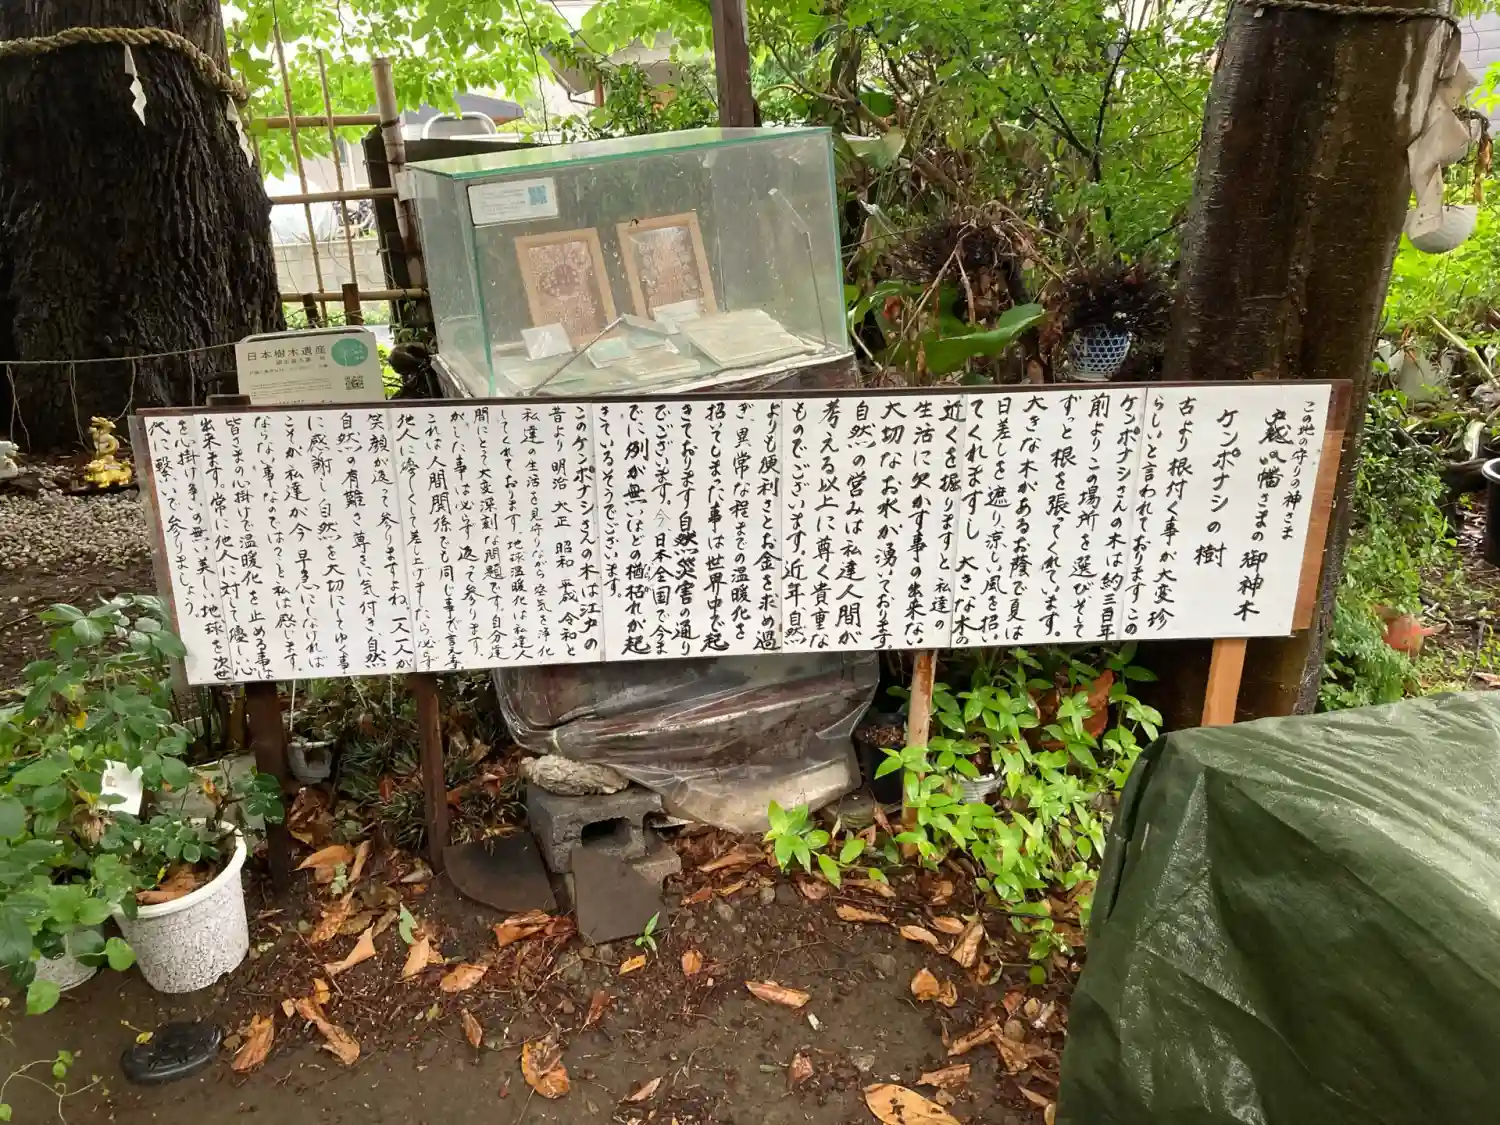 この地の守りの神さま
蔵の幡さまの御神木
ケンポナシの樹
古より根付く事が大変珍
らしいと言われております
ケンポナシさんの木は約三百年
前よりこの場所を選びそして
ずっと根を張ってくれています。
大きな木があるお蔭で夏は
日差しを遮り涼しい風を招い
てくれますし 大きな木の
近くを堀りますと 私達の
生活に欠かす事の出来ない
大切なお水が湧いております。
自然の営みは私達人間が
考える以上に尊く貴重な
ものでございます。近年自然
よりも便利さとお金を求め過
ぎ、異常な程までの温暖化を
招いてしまった事は世界中で起
きております自然災害の通り
でございます。今日本全国で今ま
でに例が無いほどの楢枯れが起
きているそうでございます。
このケンポナシさんの木は江戸の
昔より 明治 大正 昭和 平成 令和と
私達の生活を見守りながら空気を浄化
してくれております。地球温暖化は私達人
間にとって大変深刻な問題です。自分達
がした事は必ず返って参ります。
これは人間関係でも同じ事が言え
他人に優しくして差し上げましたら必ず
笑顔が返って参りますよね。一人一人が
自然の有難さ尊さに気付き、自然
に感謝し自然を大切にしてゆく事
こそが私達が今早急にしなければ
ならない事なのではないかと私は感じます。
皆さまの心掛けで温暖化を止める事は
出来ます。常に他人に対して優しい心
を心掛け争いの無い美しい地球を次世
代に繋いで参りましょう。
日本樹木遺産